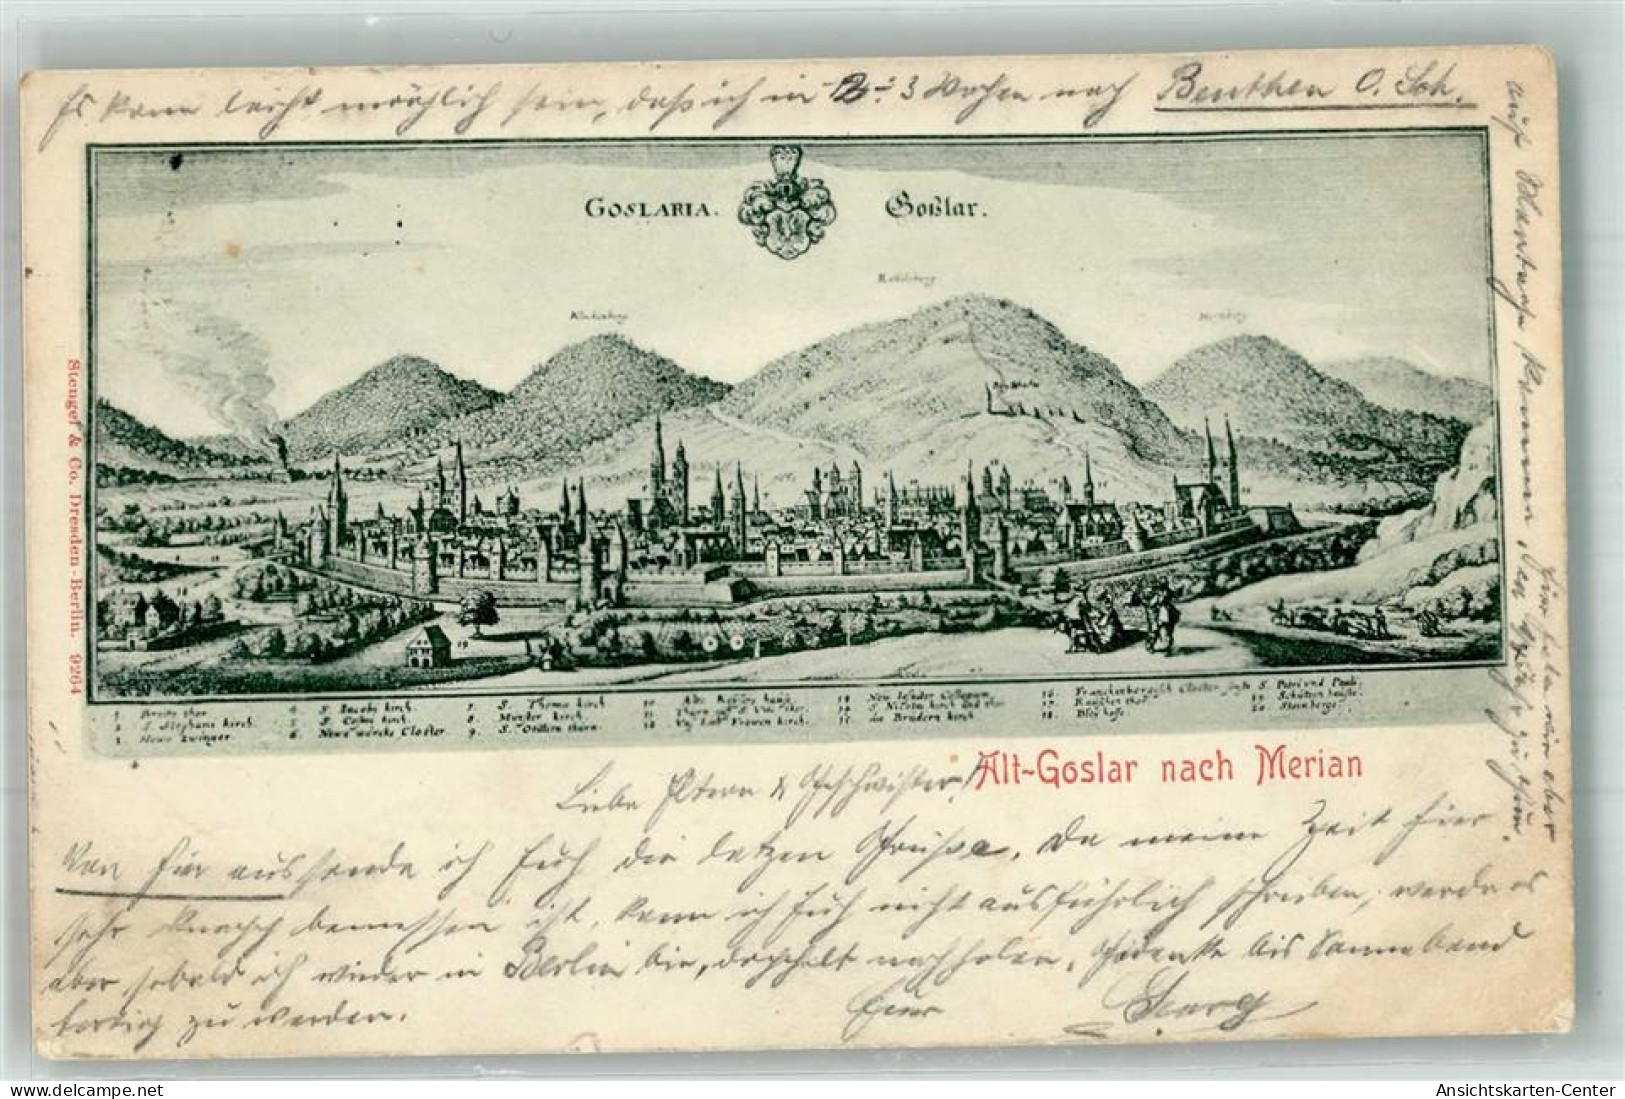 Es kann leicht möglich sein, daß ich in 2-3 Wochen nach Beuthen O. Sch.
GOSLARIA. Goßlar.
Stengel & Co. Dresden-Berlin. 9264
19
1 Breite thor
2 S. Stephans kirch.
3 Newe Zwinger
4 S. Jacobs kirch.
5 S. Cosmi kirch.
6 Newe wercks Closter
7 S. Thomæ kirch
8 Munster kirch.
9 S.
12 Frawen kirch.
15 de Brudern kirch
16 Franckenbergisch Closter
17 Rauschen thor
18 Bley hofe
S. Petri und Pauli
20 Steinberge
Alt-Goslar nach Merian
Liebe Eltern & Geschwister!
Von hier aus sende ich Euch die letzen Grüße. Da meine Zeit hier
sehr knapp bemessen ist, kann ich Euch nicht ausführlich schreiben, werde es
aber sobald ich wieder in Berlin bin, doppelt nachholen. Gedenke bis Sonnabend
fertig zu werden.
Euer Georg
auf Montage komme.